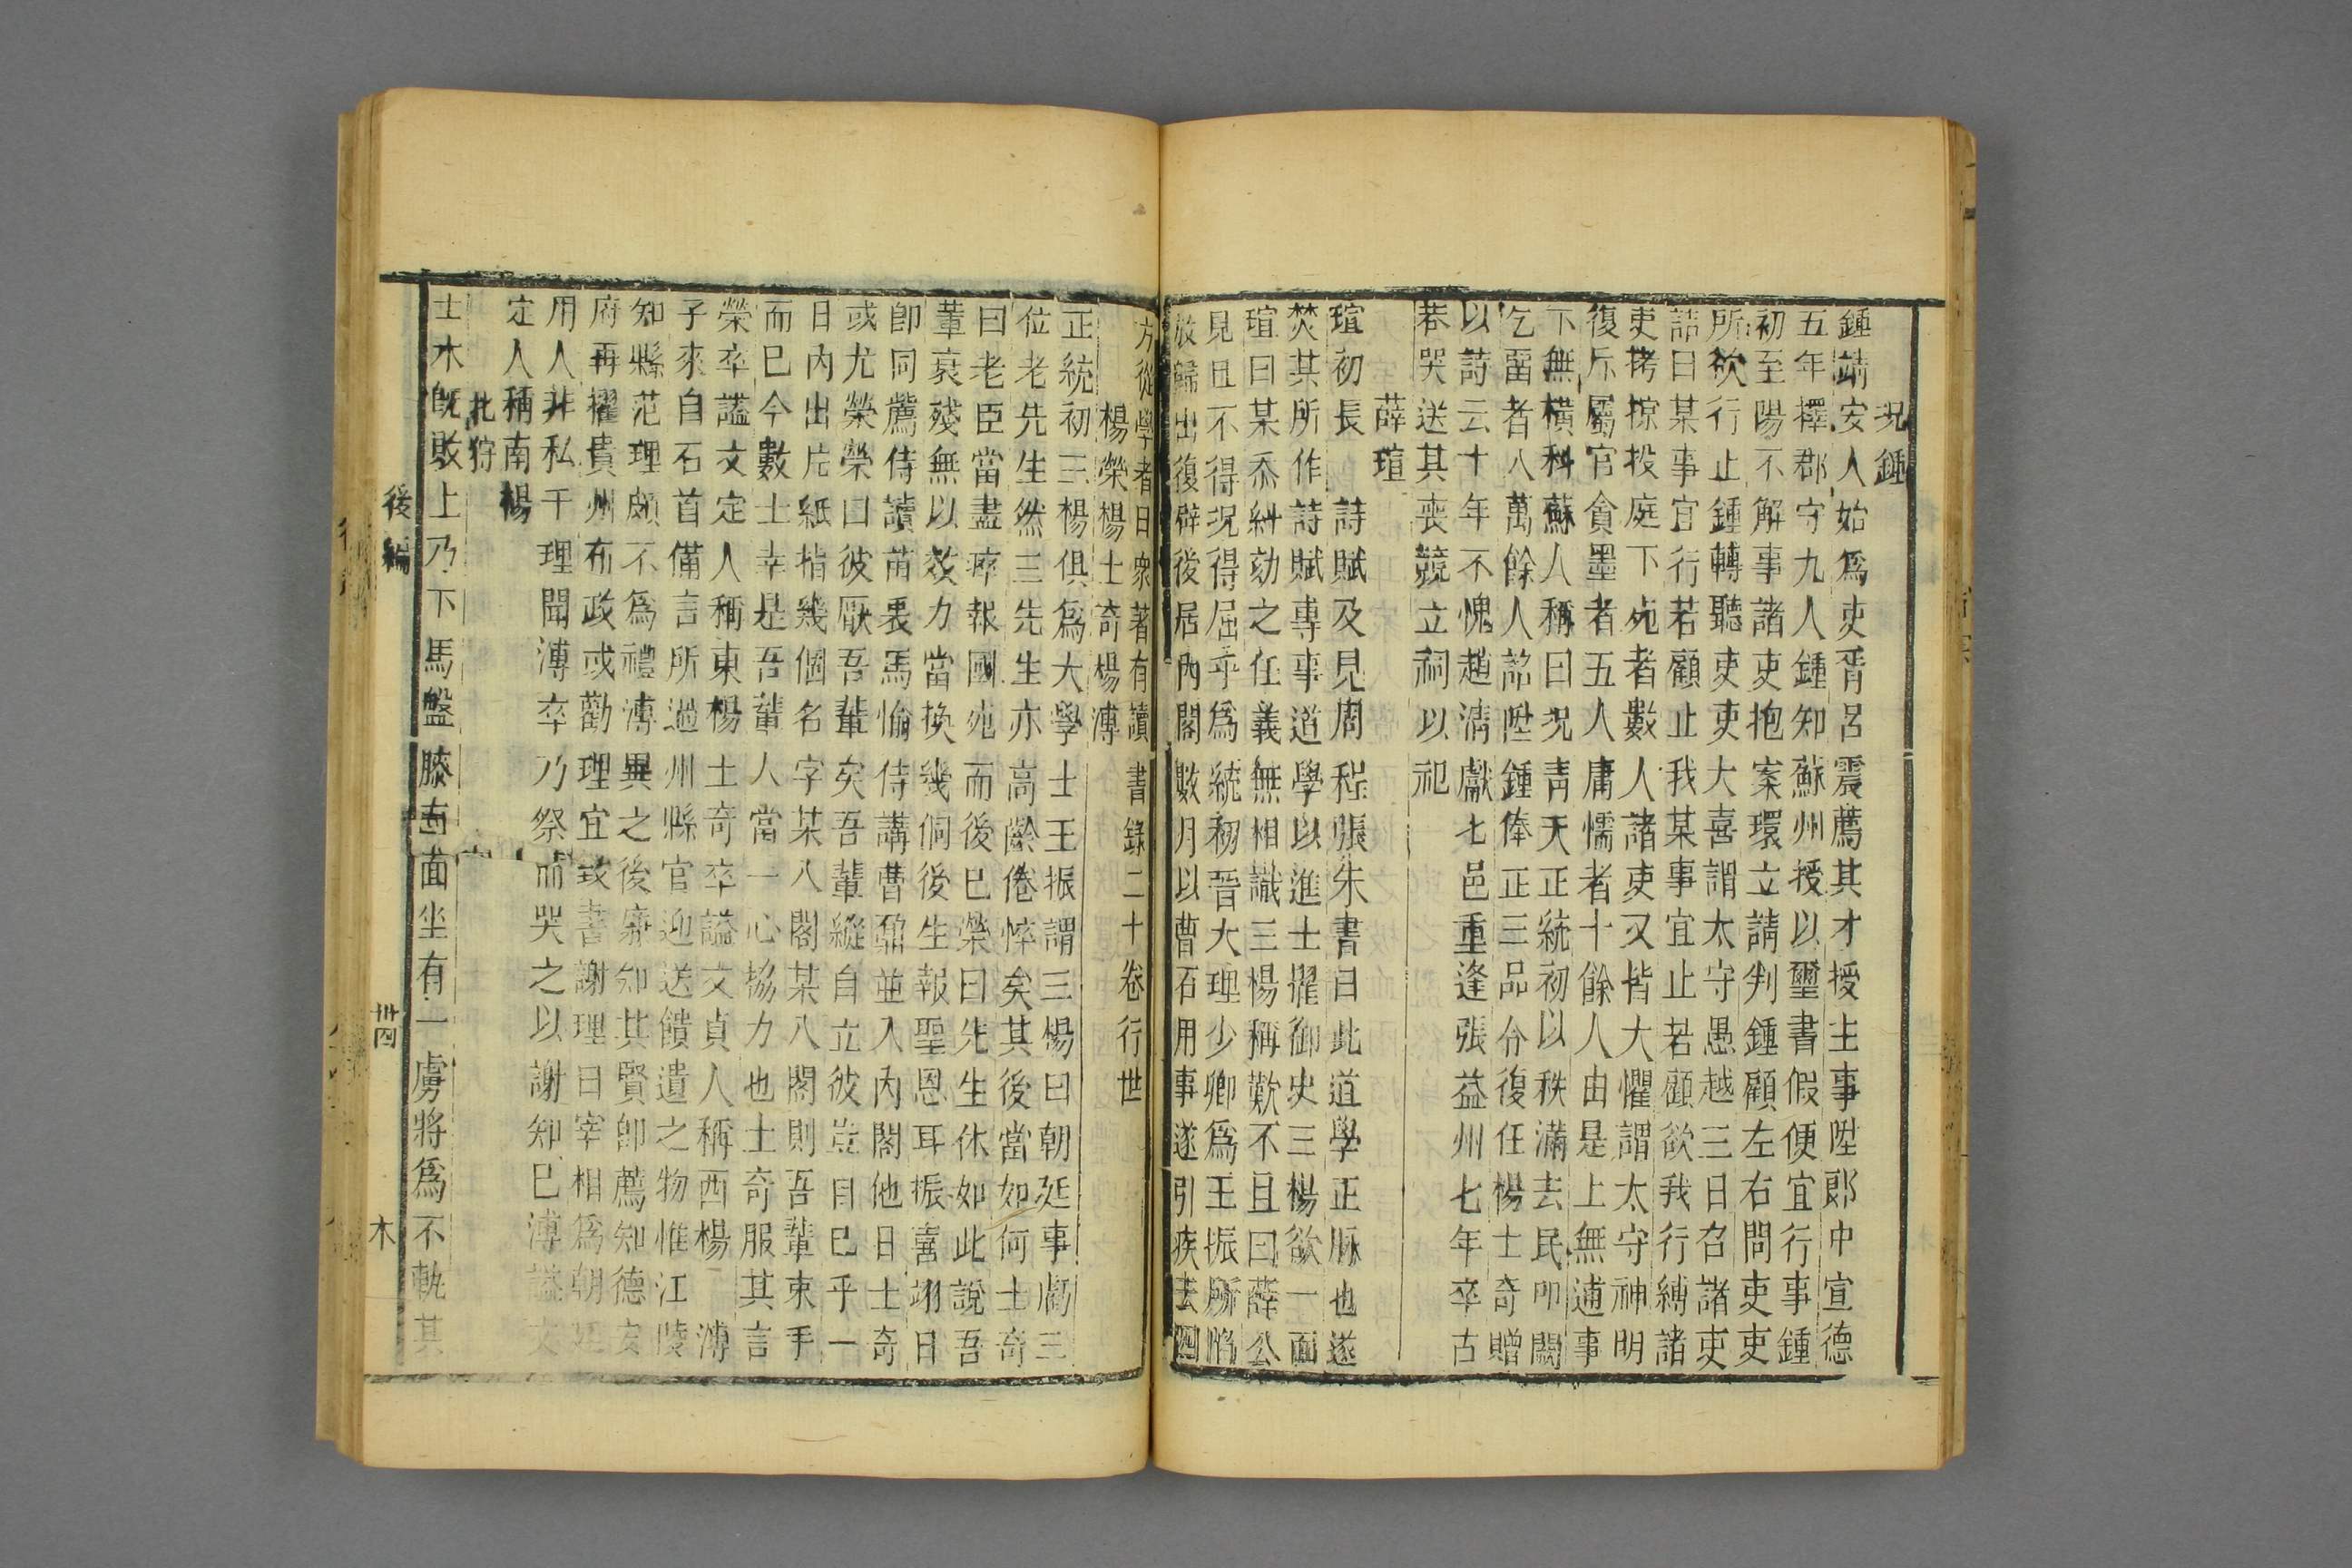 況鍾
鍾靖安人始爲吏胥呂震薦其才授主事陞郎中宣德
五年擇郡守九人鍾知蘇州授以璽書假便宜行事鍾
初至陽不解事諸吏抱案環立請判鍾顧左右問吏吏
所欲行止鍾轉聽吏吏大喜謂太守愚越三日召諸吏
詰曰某事宜行若顧止我某事宜止若顧欲我行縛諸
吏拷掠投庭下死者數人諸吏又皆大懼謂太守神明
復斥屬官貪墨者五人庸懦者十餘人由是上無逋事
下無橫科蘇人稱曰況青天正統初以秩滿去民叩闕
乞留者八萬餘人詔陞鍾俸正三品分復任楊士奇贈
以詩云十年不愧趙清獻七邑重逢張益州七年卒古
巷哭送其喪競立祠以祀
薛瑄
瑄初長 詩賦及見周程張朱書曰此道學正脉也遂
焚其所作詩賦專事道學以進士擢御史三楊欲一面
瑄曰某忝糾劾之任義無相識三楊稱歎不且曰薛公
見且不得況得屈乎爲統初晉大理少卿爲王振所陷
放歸出復辟後居內閣數月以曹石用事遂引疾去四
方從學者日衆著有讀書錄二十卷行世
楊榮楊士奇楊溥
正統初三楊俱爲大學士王振謂三楊曰朝廷事虧三
位老先生然三先生亦高齡倦悴矣其後當如何士奇
曰老臣當盡瘁報國死而後已榮曰先生休如此說吾
輩衰殘無以效力當換幾個後生報聖恩耳振喜翊日
卽同薦侍讀苗衷馬愉侍講曹鼐並入內閣他日士奇
或尤榮榮曰彼厭吾輩矣吾輩縱自立彼豈自已乎一
日內出片紙指幾個名字某入閣某入閣則吾輩束手
而已今數士幸是吾輩人當一心協力也士奇服其言
榮卒謚文定人稱東楊士奇卒謚文貞人稱西楊 溥
子來自石首備言所過州縣官迎送饋遺之物惟江陵
知縣范理頗不爲禮溥異之後廉知其賢卽薦知德安
府再擢貴州布政或勸理宜致書謝理曰宰相爲朝廷
用人非私于理聞溥卒乃祭而哭之以謝知巳溥謚文
定人稱南楊
北狩
土木旣敗上乃下馬盤膝面面坐有一虜將爲不軌其
後編
卅四
木